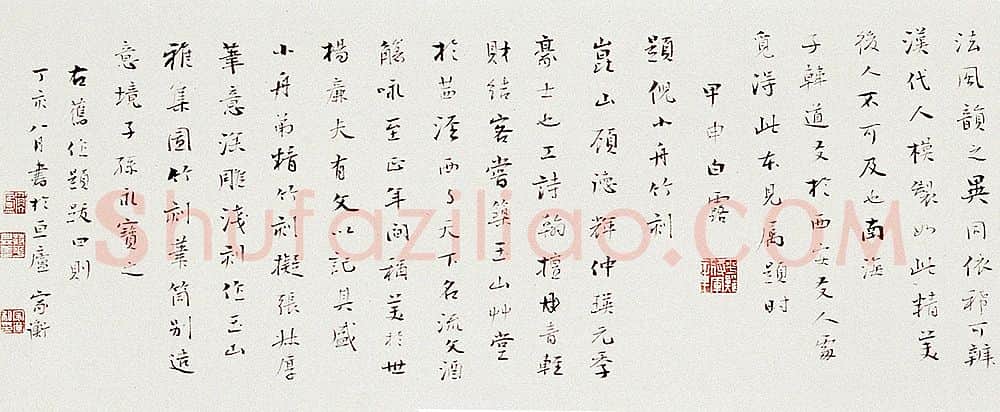 法風韻之異同依稀可辨
漢代人模製如此精美
後人不可及也南海
子韓道友於西安友人處
覓得此本見屬題時
甲申白露
題倪小舟竹刻
崑山顧德輝仲瑛元季
豪士也工詩翰擅丹青輕
財結客嘗築玉山草堂
於茜涇西了天下名流文酒
觴咏至正年間稱美於世
楊廉夫有文以記其盛
小舟弟精竹刻擬張壯厚
筆意深雕淺刻作玉山
雅集圖竹刻筆筒別造
意境子孫永寶之
右舊作題跋四則
丁亥八月書於亘廬 家衡
Shufaziliao.COM